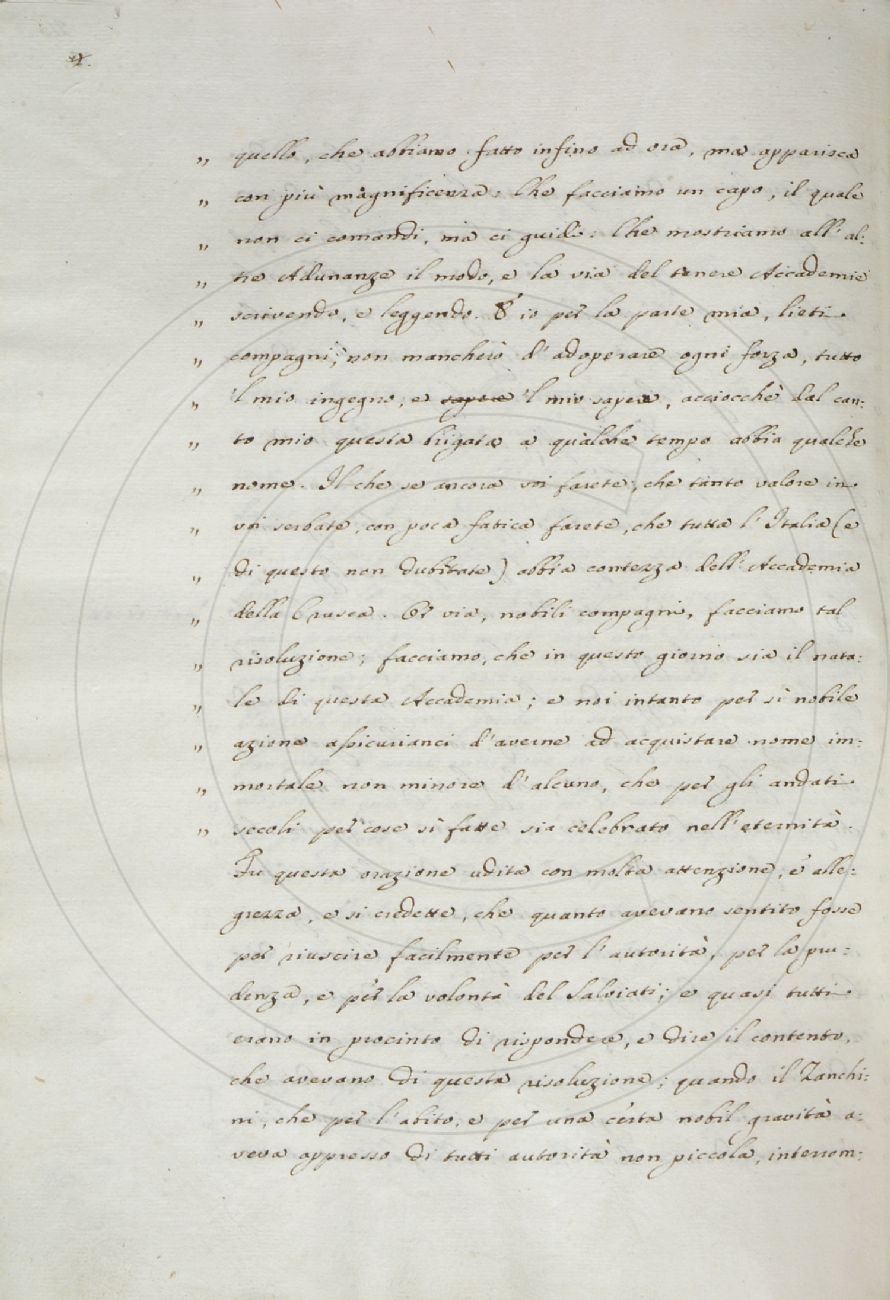 4.
„ quello, che abbiamo fatto infino ad ora, ma apparisca
„ con più magnificenza: Che facciamo un capo, il quale
„ non ci comandi, ma ci guidi: Che mostriamo all' al:
„ tre Adunanze il modo, e la via del tenere Accademie
„ scrivendo, e leggendo. E io per la parte mia, lieti
„ compagni, non mancherò d'adoperare ogni forza, tutto
„ 'l mio ingegno, e sapere 'l mio sapere, acciocchè dal can:
„ to mio questa brigata a qualche tempo abbia qualche
„ nome. Il che se ancora voi farete, che tanto valore in
„ voi serbate, con poca fatica farete, che tutta l'Italia (e
„ di questo non dubitate) abbia contezza dell'Accademia
„ della Crusca. Or via, nobili compagni, facciamo tal
„ risoluzione; facciamo, che in questo giorno sia il nata:
„ le di questa Accademia; e noi intanto per sì nobile
„ azione assicurianci d'averne ad acquistare nome im:
„ mortale non minore d'alcuno, che per gli andati
„ secoli per cose sì fatte sia celebrato nell'eternità.
Fu questa orazione udita con molta attenzione, e alle:
grezza, e si credette, che quanto avevano sentito fosse
per riuscire facilmente per l'autorità, per la pru:
denza, e per la volontà del Salviati; e quasi tutti
erano in procinto di rispondere, e dire il contento,
che avevano di questa risoluzione; quando il Zanchi:
ni, che per l'abito, e per una certa nobil gravità a:
veva appresso di tutti autorità non piccola, interrom: